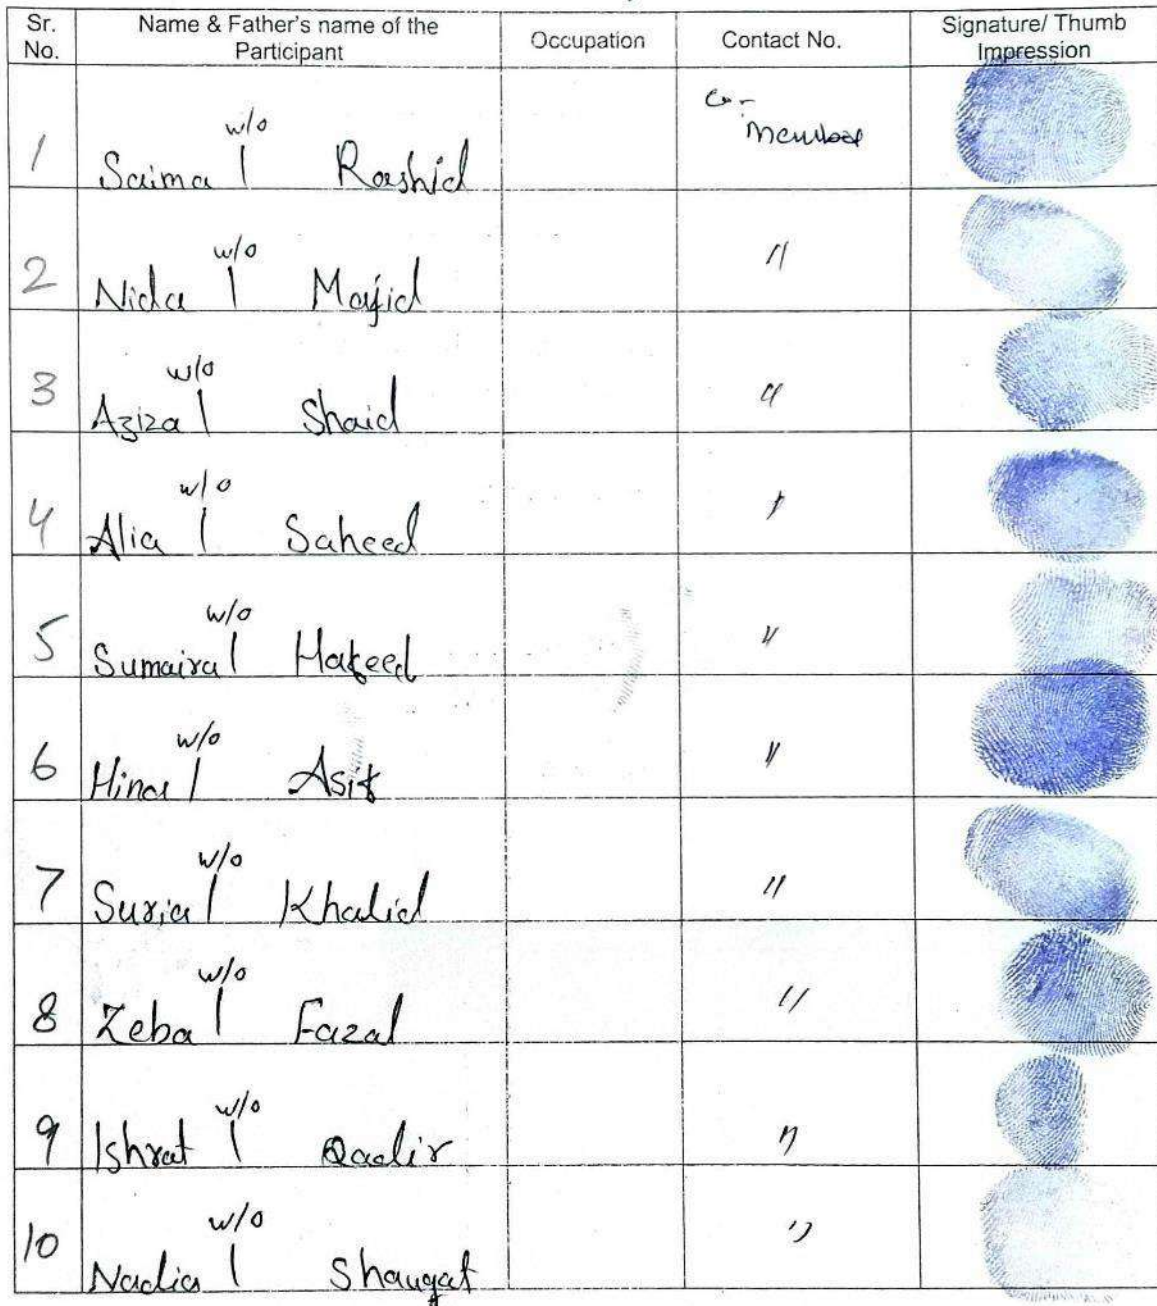 Sr. No. Name & Father's name of the Participant Occupation Contact No. Signature/ Thumb Impression
1 Saima w/o Rashid Member
2 Nida w/o Majid "
3 Aziza w/o Shaid "
4 Alia w/o Saheed "
5 Sumaira w/o Hafeed "
6 Hina w/o Asif "
7 Suria w/o Khalid "
8 Zeba w/o Fazal "
9 Ishrat w/o Qadir "
10 Nadia w/o Shauqat "